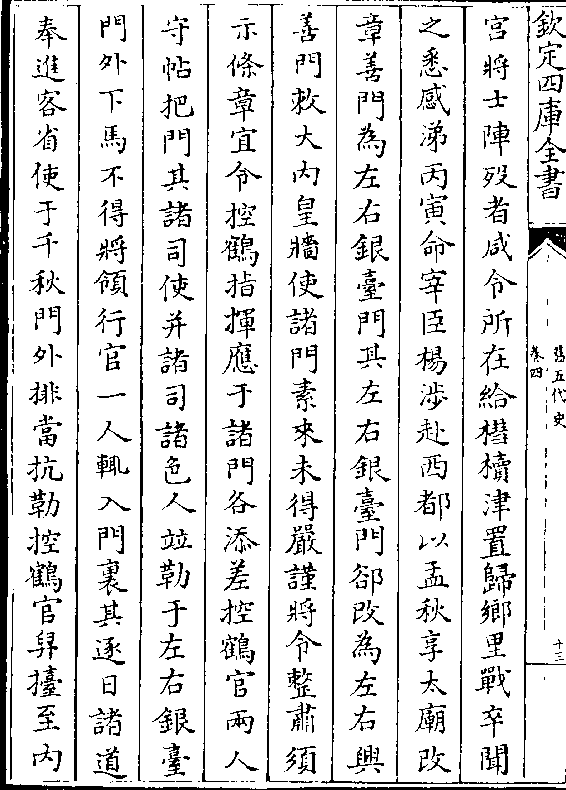 欽定四庫全書
舊五代史
卷四
十三
宮將士陣歿者咸令所在給槥櫝津置歸鄉里戰卒聞
之悉感涕丙寅命宰臣楊涉赴西都以孟秋享太廟改
章善門為左右銀臺門其左右銀臺門卻改為左右興
善門敕大內皇牆使諸門素來未得嚴謹將令整肅須
示條章宜令控鶴指揮應于諸門各添差控鶴官兩人
守帖把門其諸司使并諸司諸色人並勒于左右銀臺
門外下馬不得將領行官一人輒入門裏其逐日諸道
奉進客省使于千秋門外排當抗勒控鶴官舁擡至內